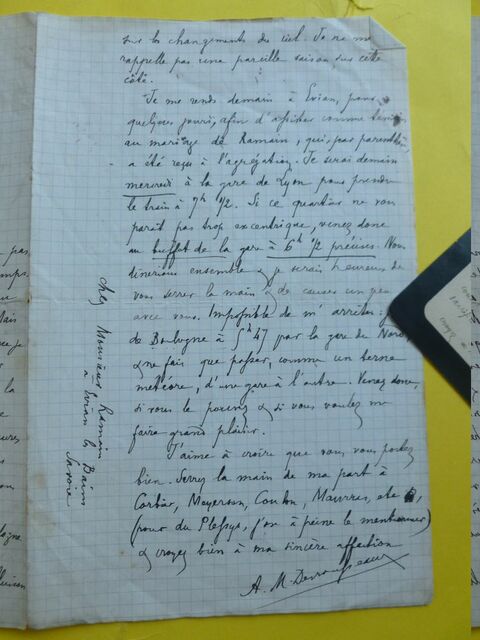 sur les changements du ciel. Je ne me
rappelle pas une pareille saison sur cette
côte.
Je me rends demain à Evian, pour
quelques jours, afin d'assister comme témoin
au mariage de Ramain, qui, par parenthèse,
a été reçu à l'agrégation. Je serai demain
mercredi à la gare de Lyon pour prendre
le train à 7h 1/2. Si ce quartier ne vous
paraît pas trop excentrique, venez donc
au buffet de la gare à 6h 1/2 précises. Nous
dînerions ensemble & je serais heureux de
vous serrer la main & de causer un peu
avec vous. Impossible de m'arrêter: j'
de Boulogne à 5h47 par la gare du Nord
& ne fais que passer, comme un terne
météore, d'une gare à l'autre. Venez donc,
si vous le pouvez & si vous voulez me
faire grand plaisir.
J'aime à croire que vous vous portez
bien. Serrez la main de ma part à
Corbier, Meyerson, Coulon, Maurras, etc
(pour du Plessys, j'ose à peine le mentionner)
& croyez bien à ma sincère affection
A. M. Desrousseaux
chez Monsieur Ramain
à Evian les Bains
Savoie